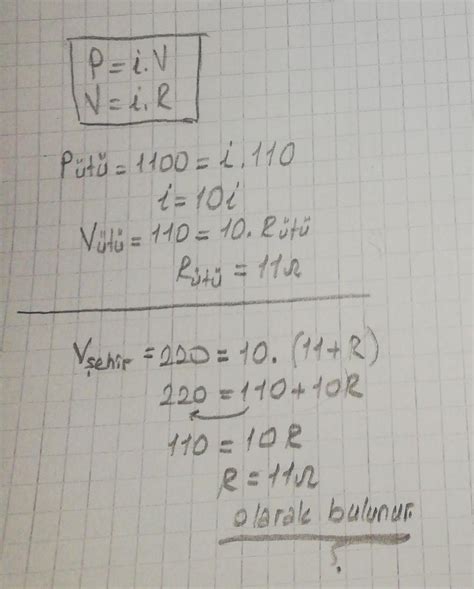 P = i.V
V = i.R
Pütü = 1100 = i.110
i = 10i
Vütü = 110 = 10.Rütü
Rütü = 11Ω
Vşehir = 220 = 10.(11+R)
220 = 110 + 10R
110 = 10R
R = 11Ω
olarak bulunur.